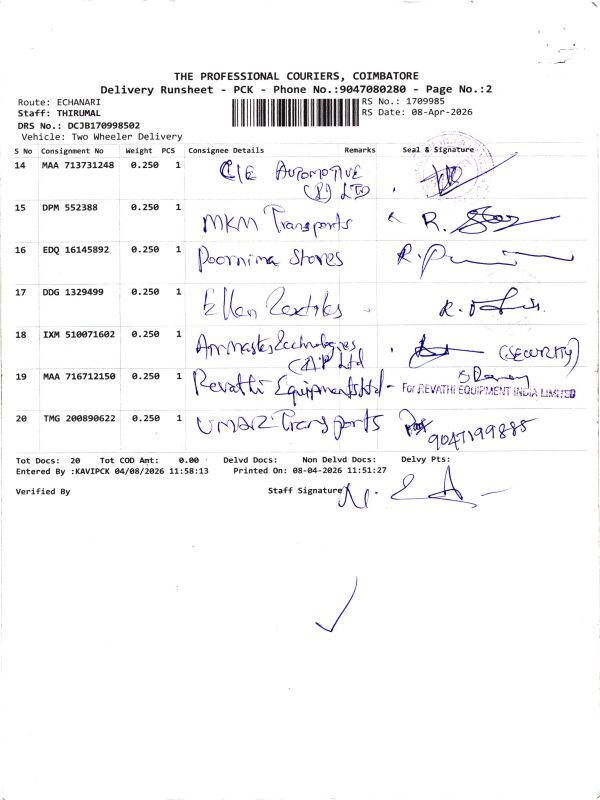 THE PROFESSIONAL COURIERS, COIMBATORE
Delivery Runsheet - PCK - Phone No.:9047080280 - Page No.:2
Route: ECHANARI
RS No.: 1709985
Staff: THIRUMAL
RS Date: 08-Apr-2026
DRS No.: DCJB170998502
Vehicle: Two Wheeler Delivery
S No Consignment No Weight PCS Consignee Details Remarks Seal & Signature
14 MAA 713731248 0.250 1 CIE AUTOMOTIVE
(P) LTD
15 DPM 552388 0.250 1 MKM Transports R.
16 EDQ 16145892 0.250 1 Poornima Stores R.
17 DDG 1329499 0.250 1 Ellen Textiles R.
18 IXM 510071602 0.250 1 Technologies (SECURITY)
Ltd
19 MAA 716712150 0.250 1 Revathi Equipments Ltd - For REVATHI EQUIPMENT INDIA LIMITED
20 TMG 200890622 0.250 1 UMAR Transports 9047199885
Tot Docs: 20 Tot COD Amt: 0.00 Delvd Docs: Non Delvd Docs: Delvy Pts:
Entered By :KAVIPCK 04/08/2026 11:58:13 Printed On: 08-04-2026 11:51:27
Verified By Staff Signature